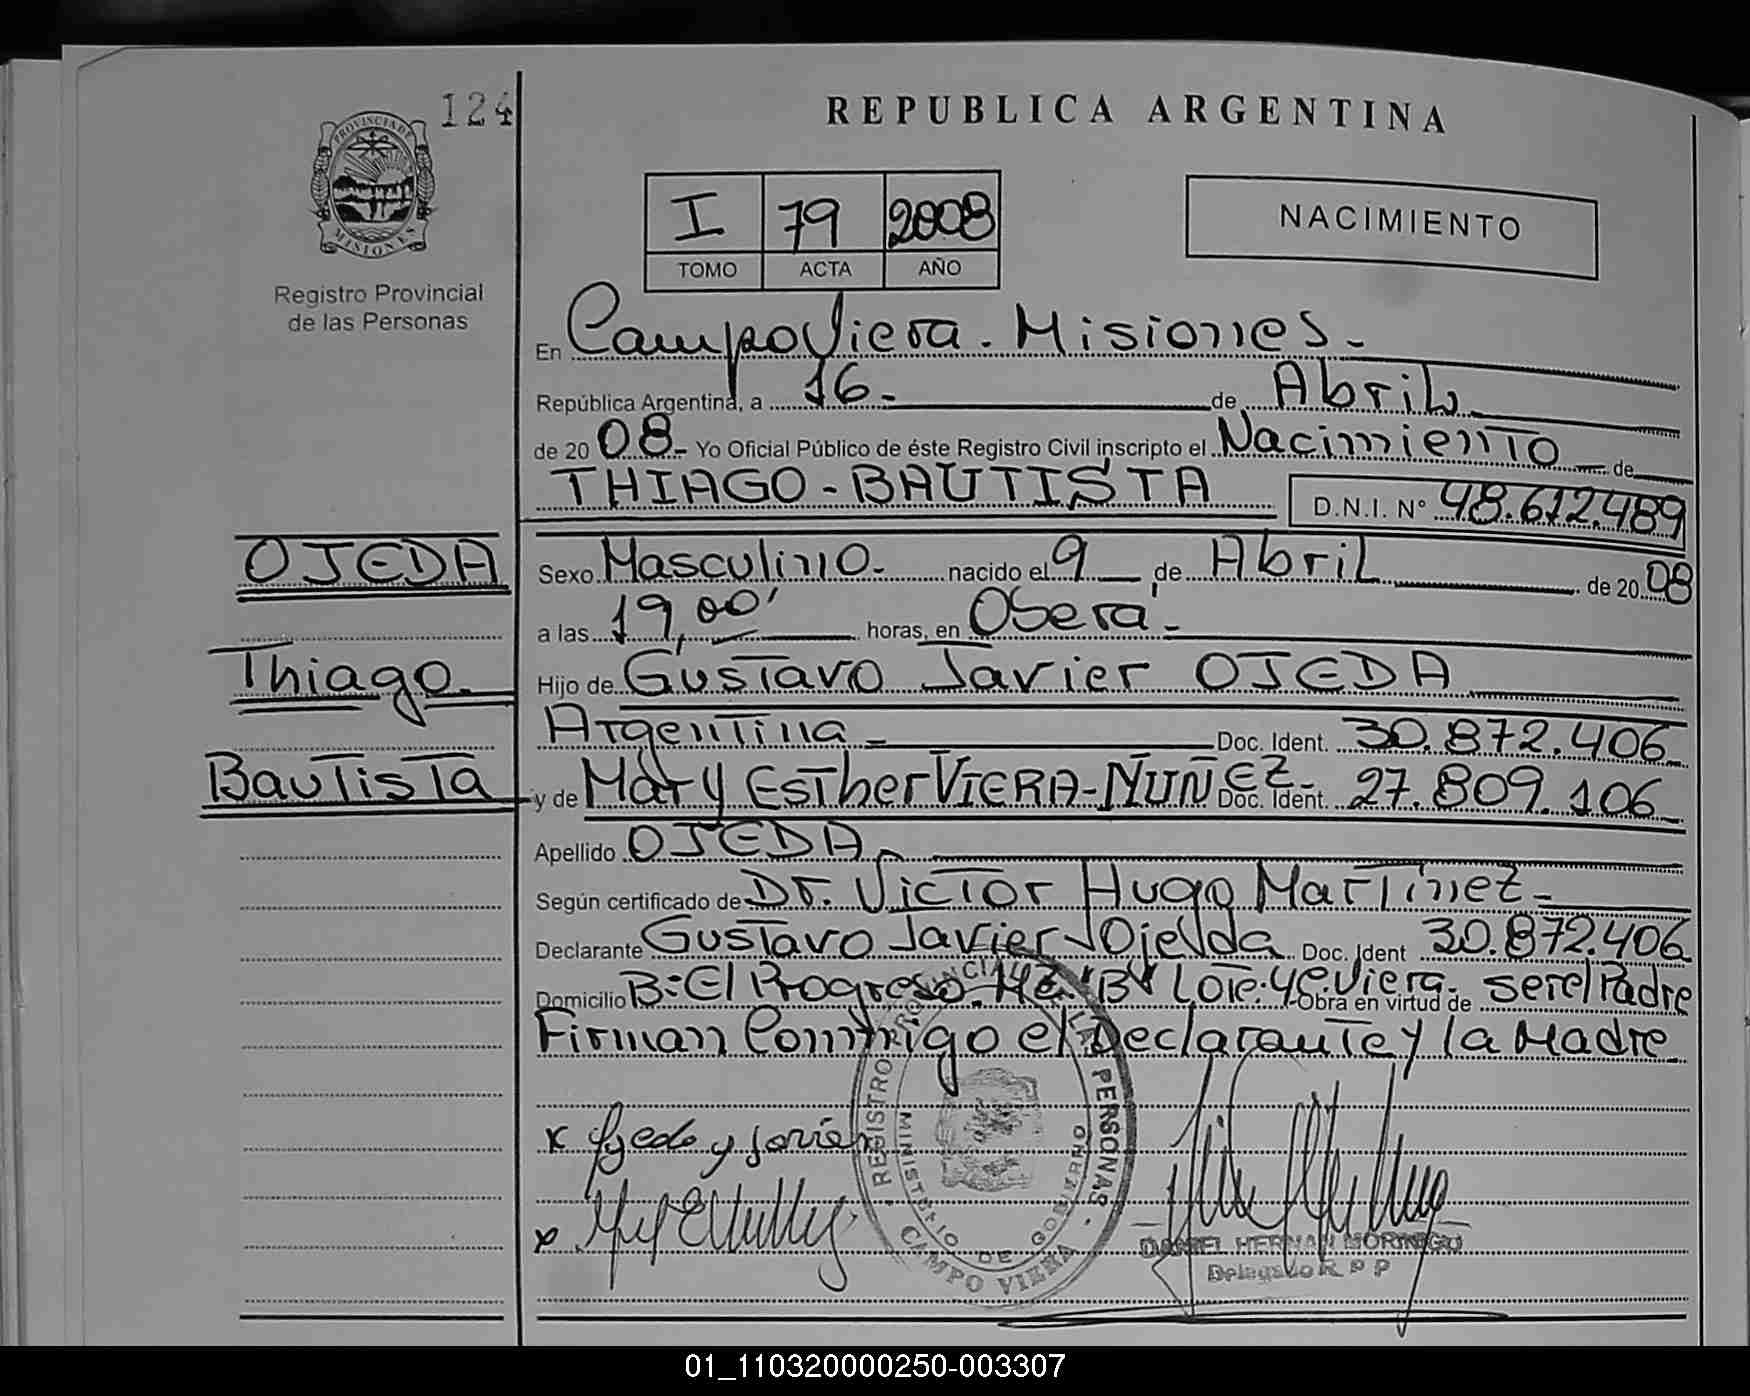 124
PROVINCIA DE
MISIONES
Registro Provincial
de las Personas
REPUBLICA ARGENTINA
I 79 2008
TOMO ACTA AÑO
NACIMIENTO
En Campo Viera - Misiones -
República Argentina, a 16 - de Abril
de 20 08 - Yo Oficial Público de éste Registro Civil inscripto el Nacimiento de
THIAGO - BAUTISTA D.N.I. N° 48.612.489
OJEDA
Thiago
Bautista
Sexo Masculino - nacido el 9 de Abril de 20 08
a las 19,00' horas, en Oberá -
Hijo de Gustavo Javier OJEDA
Argentina - Doc. Ident. 30.872.406
y de Mary Esther VIERA - NUÑEZ - Doc. Ident. 27.809.106
Apellido OJEDA
Según certificado de Dr. Victor Hugo Martinez -
Declarante Gustavo Javier Ojeda Doc. Ident 30.872.406
Domicilio B: El Progreso. Mz "B" Lote: 4 C. Viera. Obra en virtud de ser el Padre
Firman Conmigo el Declarante y la Madre
x
x
REGISTRO PROVINCIAL DE LAS PERSONAS
MINISTERIO DE GOBIERNO
CAMPO VIERA
DANIEL HERNAN MORINIGO
Delegado R P P
01_110320000250-003307